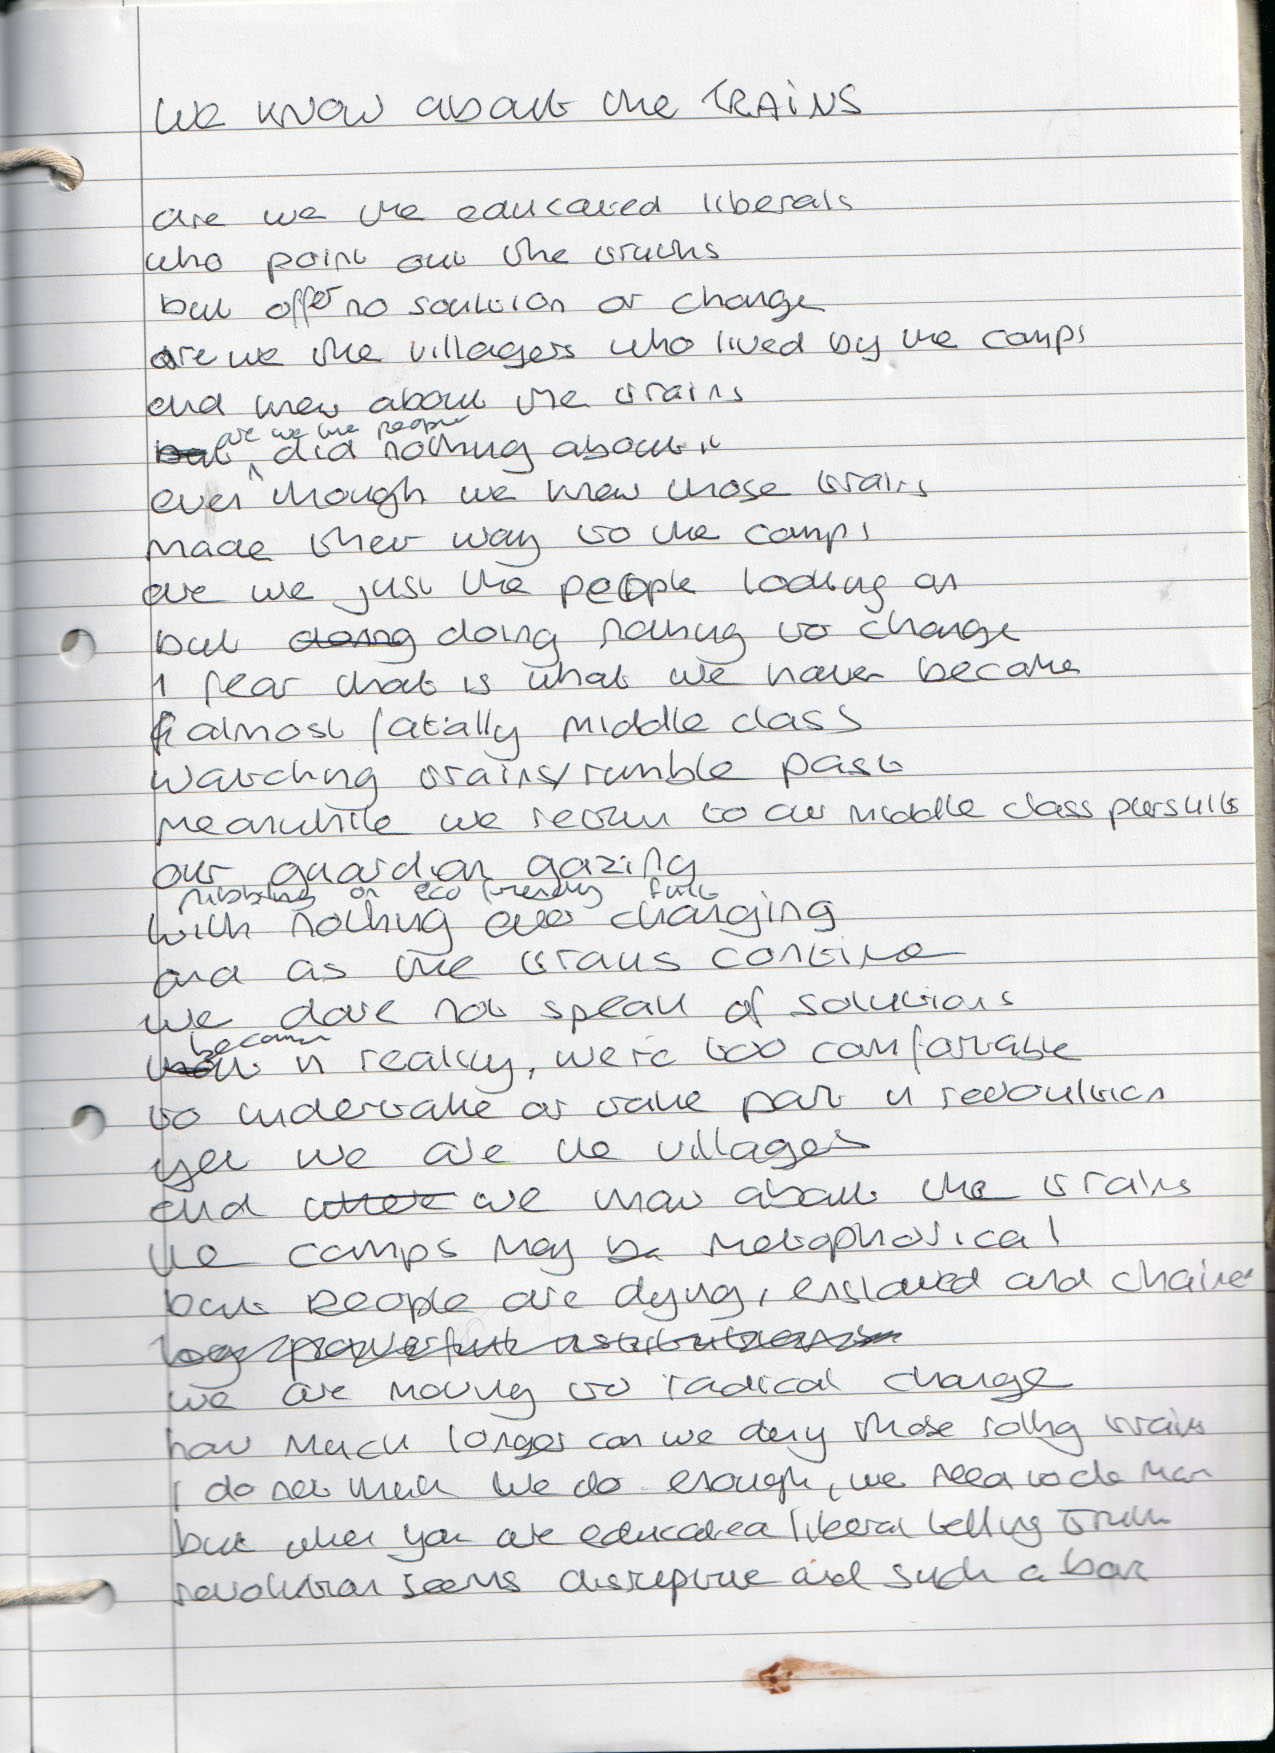 We know about the TRAINS
are we the educated liberals
who point out the truths
but offer no soulution or change
are we the villagers who lived by the camps
and knew about the trains
are we the people
but did nothing about it
even though we knew those trains
made their way to the camps
are we just the people looking on
but doing doing nothing to change
I fear that is what we have become
almost fatally middle class
watching trains rumble past
meanwhile we return to our middle class pursuits
our guardian gazing
nibbling on eco friendly fruit
with nothing ever changing
and as the trains continue
we dare not speak of solutions
because
in reality, we're too comfortable
to undertake or take part in revoulution
yet we are the villages
and we know about the trains
the camps may be metaphorical
but people are dying, enslaved and chained
big powerful institutions
we are moving to radical change
how much longer can we deny those rolling trains
I do not think we do enough, we need to do more
but when you are educated liberal telling truth
revolution seems disruptive and such a bore